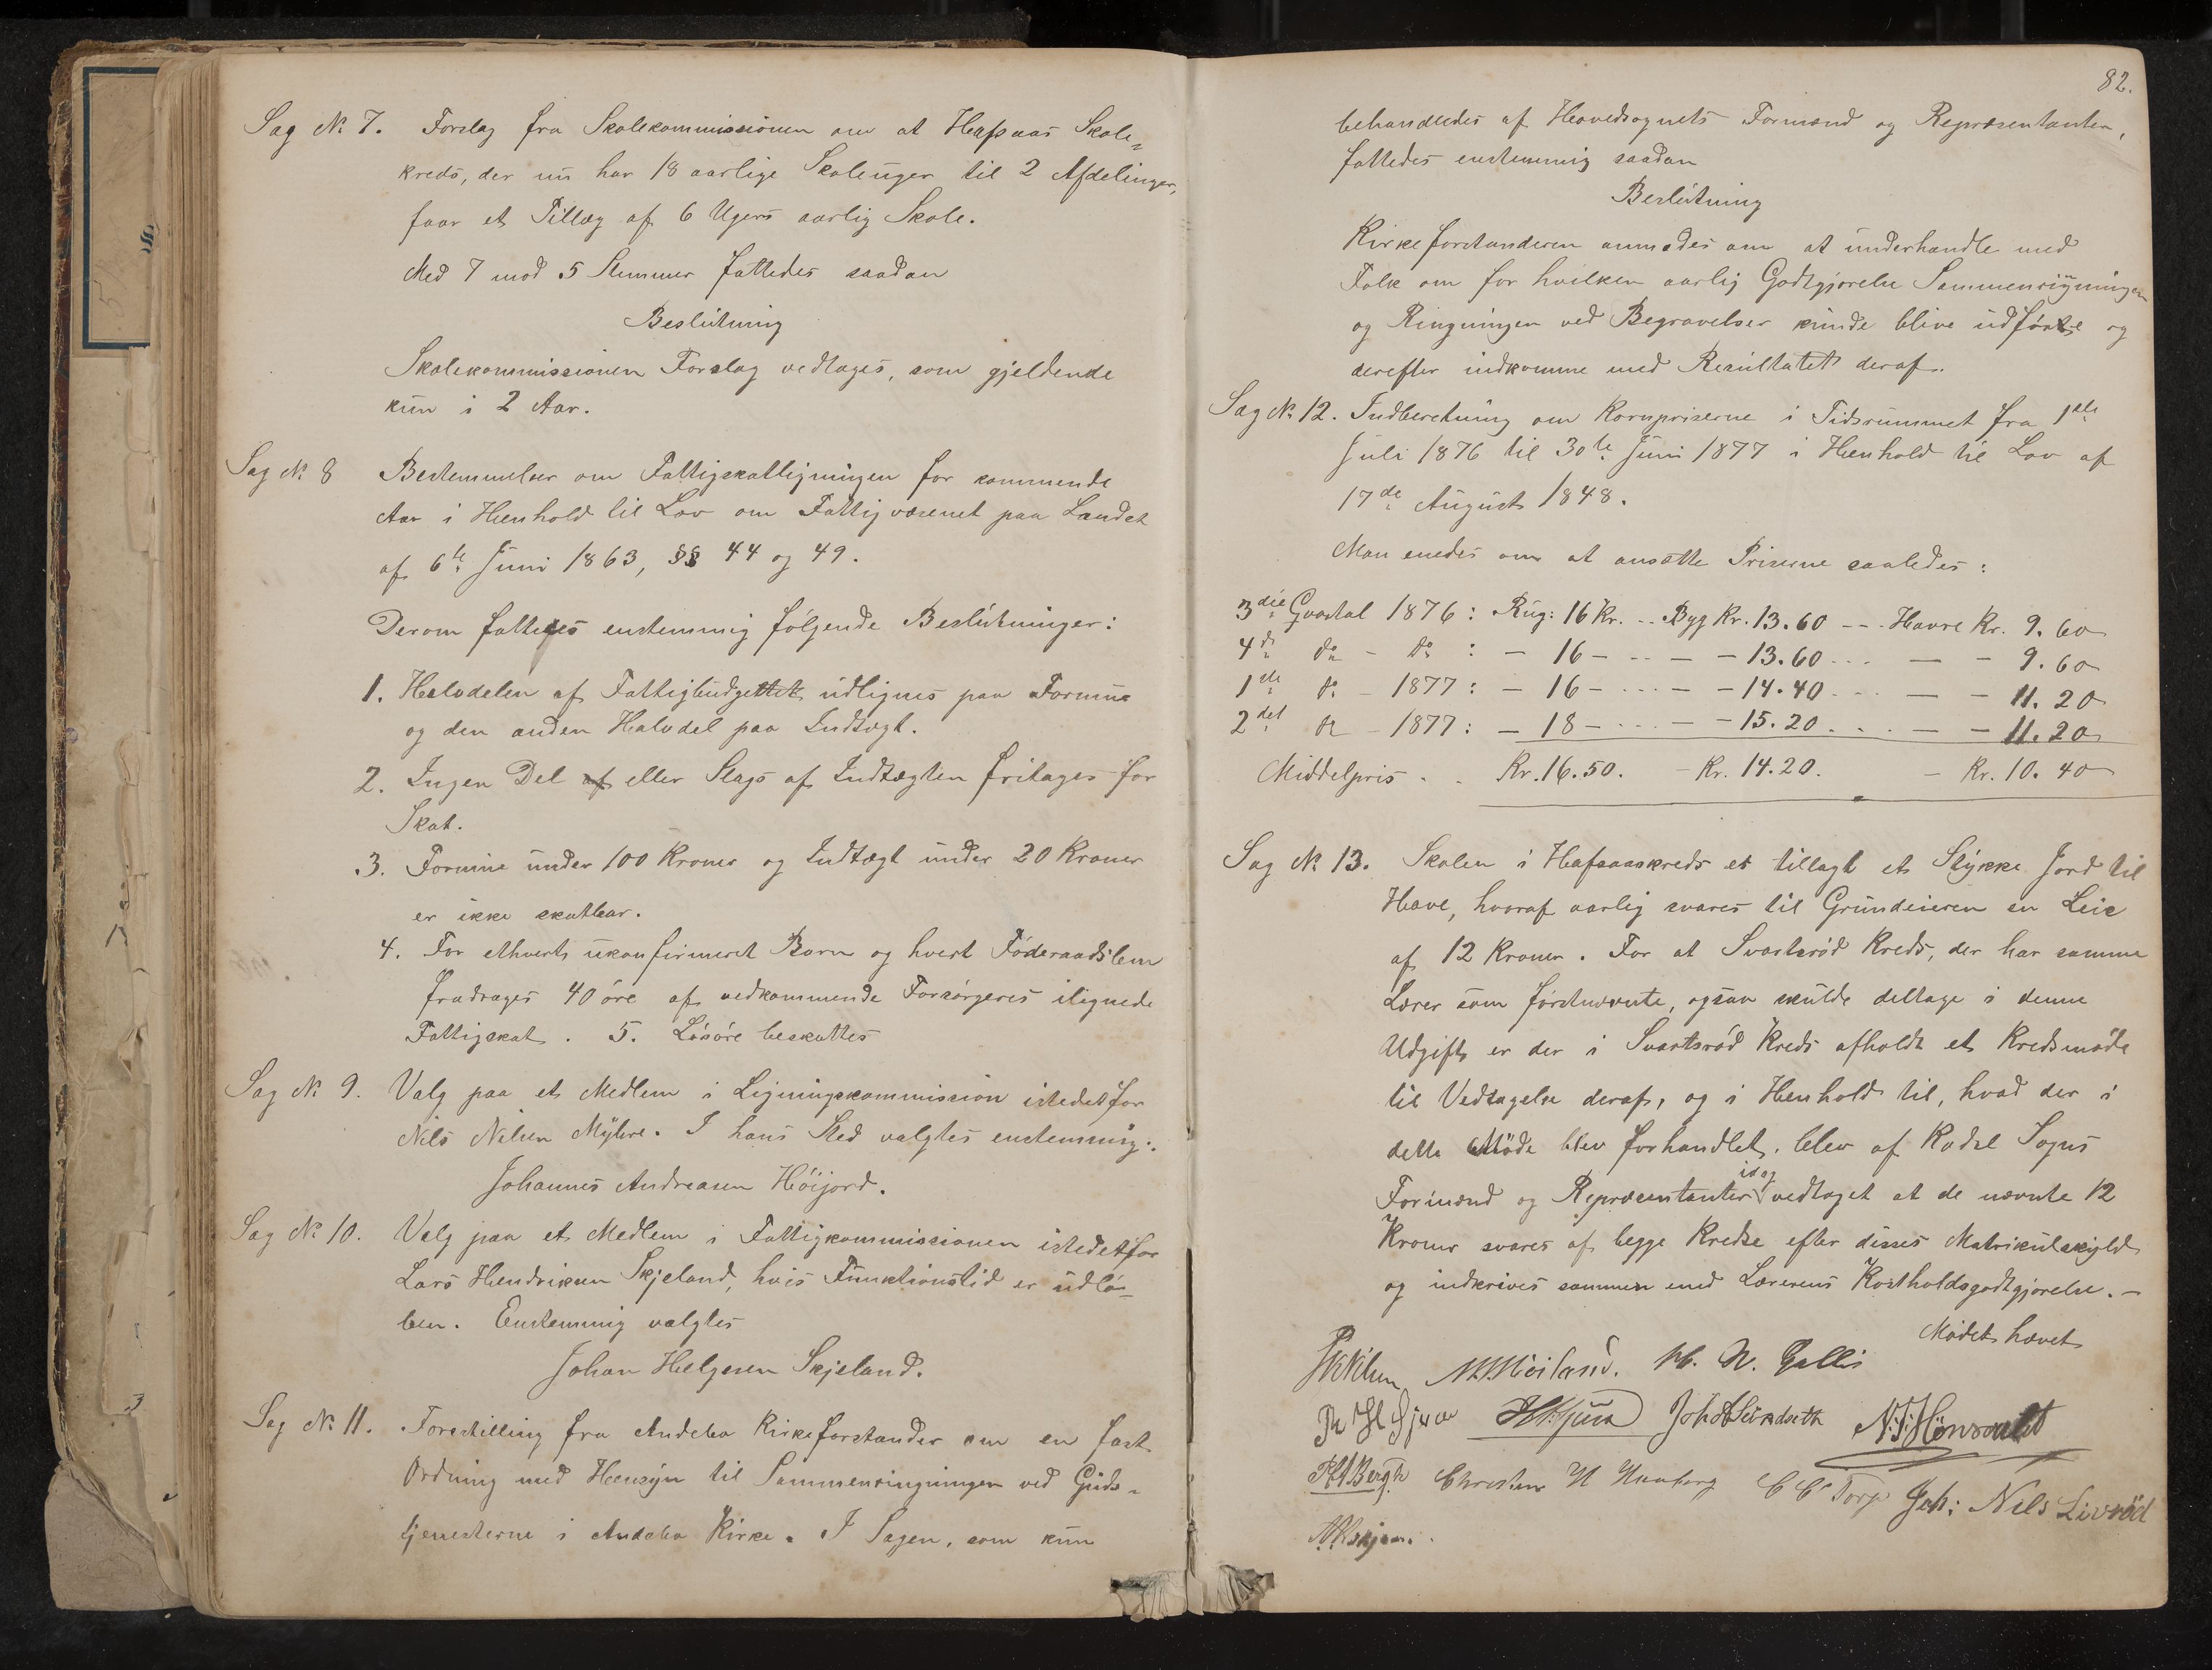 Sag № 7. Forslag fra Skolekommissionen om at Hafsaas Skole-
kreds, der nu har 18 aarlige Skoleuger til 2 Afdelinger,
faar et Tillæg af 6 Ugers aarlig Skole.
Med 7 mod 5 Stemmer fattedes saadan
Beslutning
Skolekommissionen Forslag vedtages, som gjeldende
kun i 2 Aar.
Sag № 8 Bestemmelser om Fattigskatligningen for kommende
Aar i Henhold til Lov om Fattigvæsenet paa Landet
af 6te Juni 1863, §§ 44 og 49.
Derom fattedes enstemmig følgende Beslutninger:
1. Halvdelen af Fattigbudgettet udlignes paa Formue
og den anden Halvdel paa Indtægt.
2. Ingen Del af eller Slags af Indtægten fritages for
Skat.
3. Formue under 100 Kroner og Indtægt under 20 Kroner
er ikke skatbar.
4. For ethvert ukonfirmeret Barn og hvert Føderaadslem
fradrages 40 øre af vedkommende Forsørgeres ilignede
Fattigskat. 5. Løsøre beskattes
Sag № 9. Valg paa et Medlem i Ligningskommission istedetfor
Nils Nilsen Myhre. I hans Sted valgtes enstemmig:
Johannes Andreasen Høijord.
Sag № 10. Valg paa et Medlem i Fattigkommissionen istedetfor
Lars Hendriksen Skjeland, hvis Funktionstid er udlø-
ben. Enstemmig valgtes
Johan Helgesen Skjeland.
Sag № 11. Forestilling fra Andebo Kirkeforstander om en fast
Ordning med Hensyn til Sammenringningen ved Guds-
tjenesterne i Andebo Kirke. I Sagen, som kun
82.
behandledes af Hovedsognets Formænd og Repræsentanter,
fattedes enstemmig saadan
Beslutning
Kirkeforstanderen anmodes om at underhandle med
Folk om for hvilken aarlig Godtgjørelse Sammenrigningen
og Ringningen ved Begravelser kunde blive udførte og
derefter indkomme med Resultatet deraf.
Sag № 12. Indberetning om Kornpriserne i Tidsrummet fra 1ste
Juli 1876 til 30te Juni 1877 i Henhold til Lov af
17de August 1848.
Man enedes om at ansætte Priserne saaledes:
3die Qvartal 1876: Rug: 16 Kr. .. Byg Kr. 13.60 --- Havre Kr. 9.60
4de do - do : - 16 - .. - - 13.60 ... - - 9.60
1ste do - 1877: - 16 - ... - - 14.40 ... - - 11.20
2det do - 1877: - 18 - ... - - 15.20 ... - - 11.20
Middelpris . . Kr. 16.50. - Kr. 14.20. - Kr. 10.40
Sag № 13. Skolen i Hafsaaskreds er tillagt et Stykke Jord til
Have, hvoraf aarlig svares til Grundeieren en Leie
af 12 Kroner. For at Svartsrød Kreds, der har samme
Lærer som førstnævnte, ogsaa skulde deltage i denne
Udgift er der i Svartsrød Kreds afholdt et Kredsmøde
til Vedtagelse deraf, og i Henhold til, hvad der i
dette Møde blev forhandlet, blev af Kodal Sogns
idag
Formænd og Repræsentanter vedtaget at de nævnte 12
Kroner svares af begge Kredse efter disses Matrikulskyld
og indkrives sammen med Lærerens Kostholdsgodtgjørelse. -
Mødet hævet
M. N. Gallis
N. T. Hønsvald
Bergh Christen H C C Torp Joh: Nils Livrød